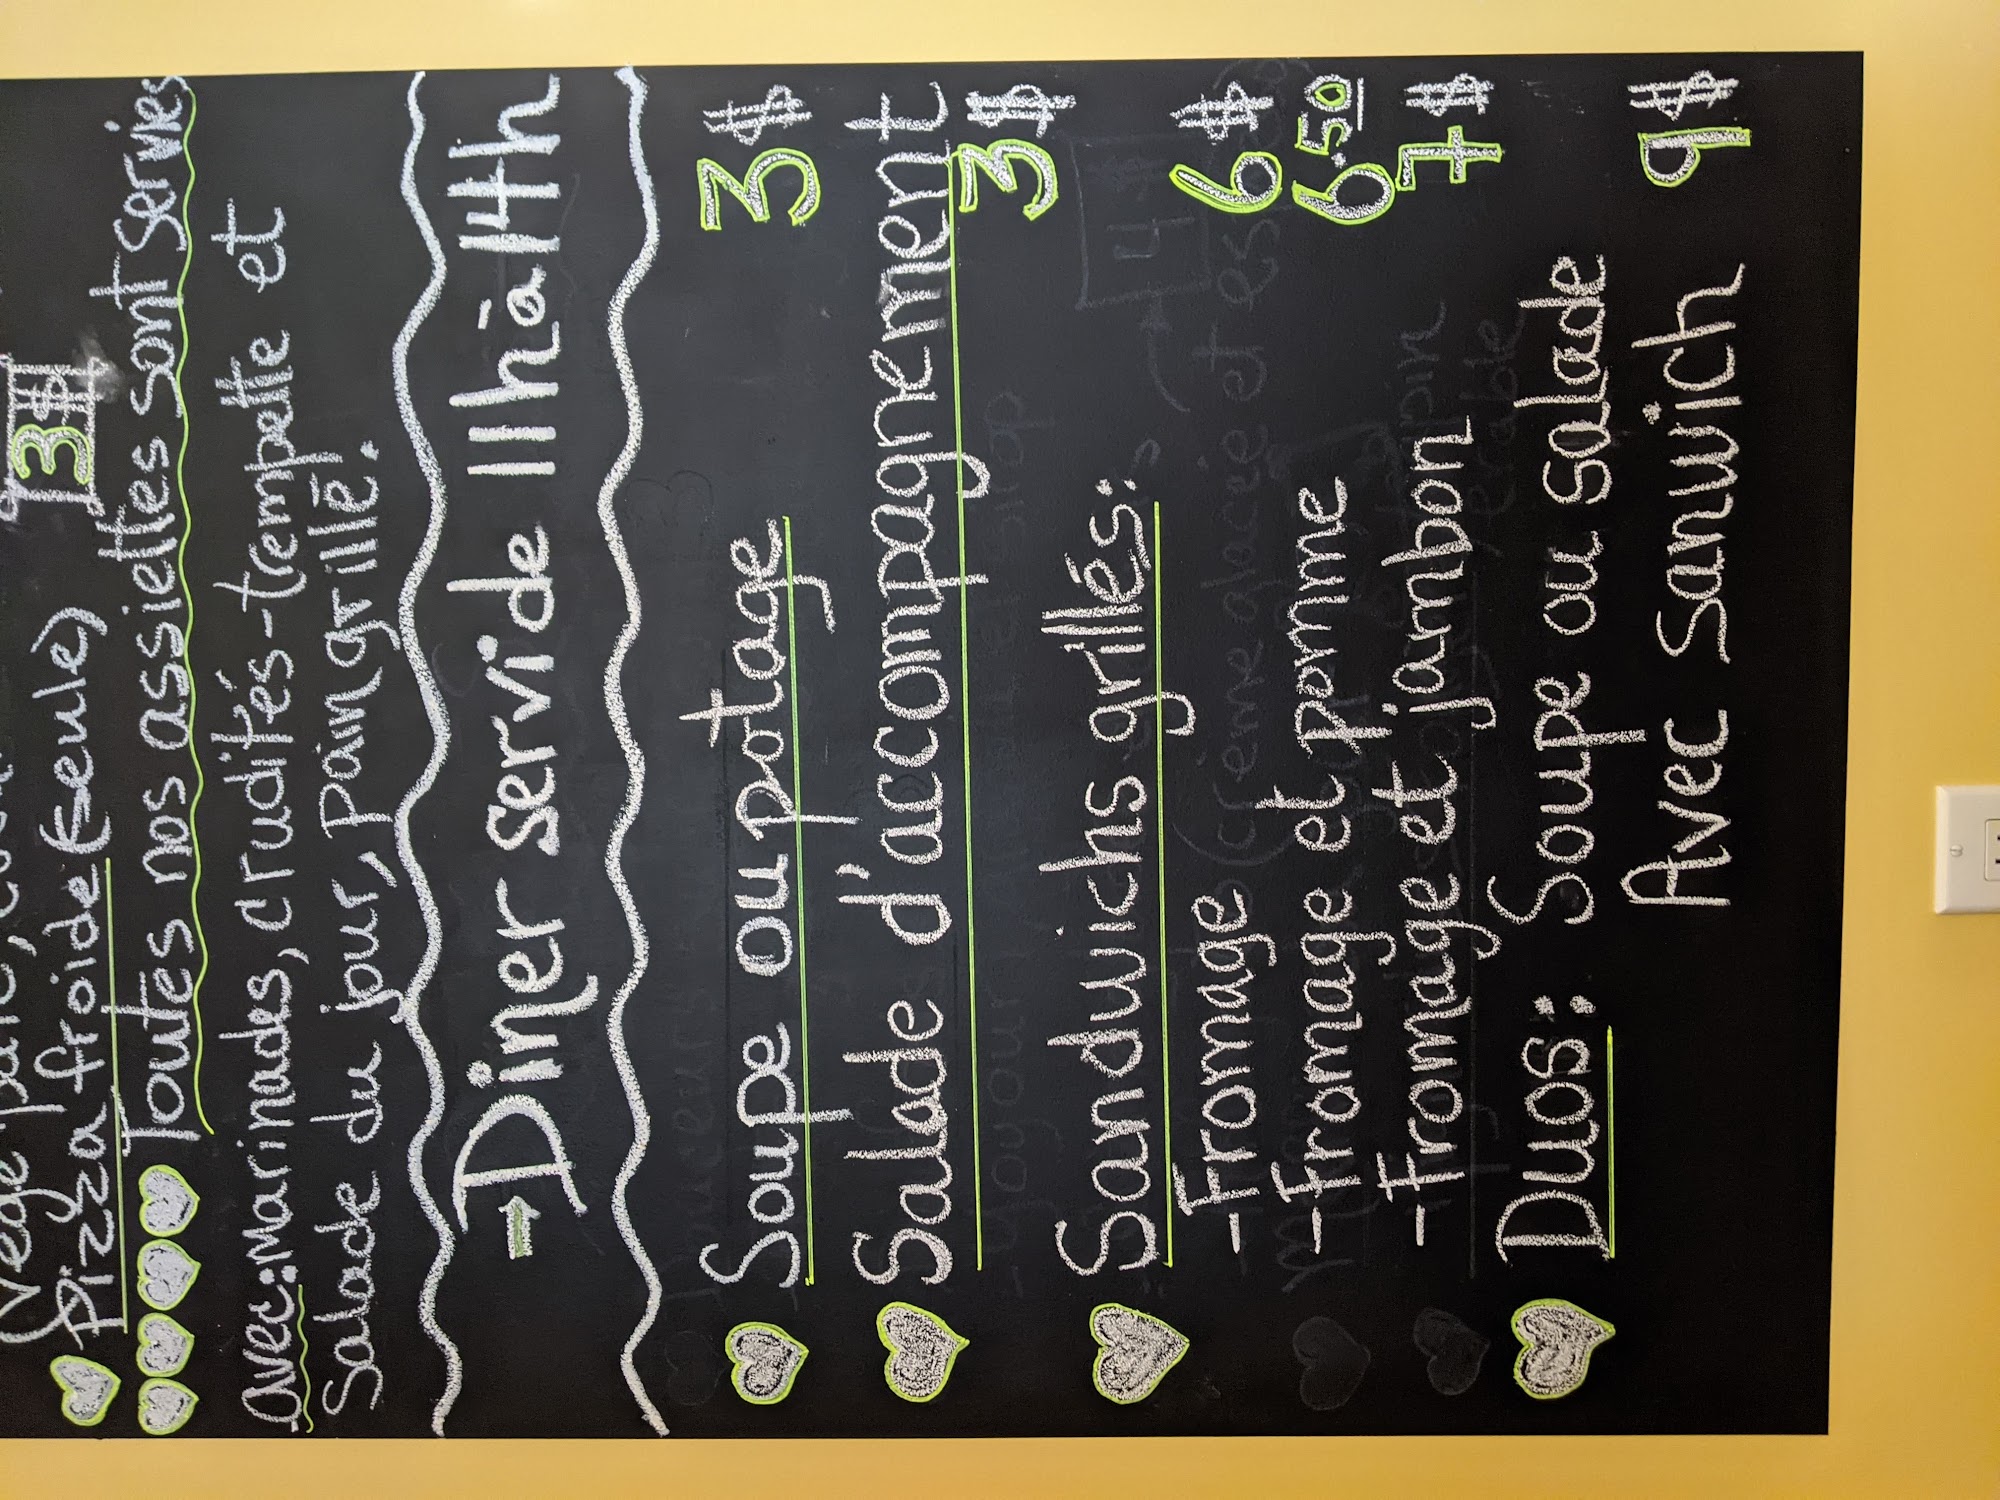 Végé pâté,
Pizza froide (seule) 3$
Toutes nos assiettes sont servies
avec: Marinades, crudités-trempette et
Salade du jour, pain grillé.
→ Dîner servi de 11h à 14h
Soupe ou potage 3$
Salade d'accompagnement
3$
Sandwichs grillés:
- Fromage 6$
- Fromage et pomme 6.50
- Fromage et jambon 7$
Duos: Soupe ou salade
Avec sanwich 9$